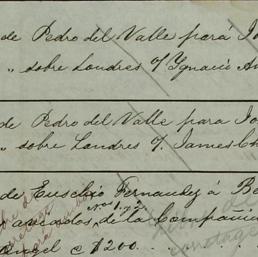 de Pedro del Valle pará Jo
" sobre Londres o/ Ygnacio An
de Pedro del Valle para Jo
" sobre Londres o/. James Ch
de Eusebio Fernandez á Be
Nos. 1 y 2
asociados de la Compañia
Angel c $1200